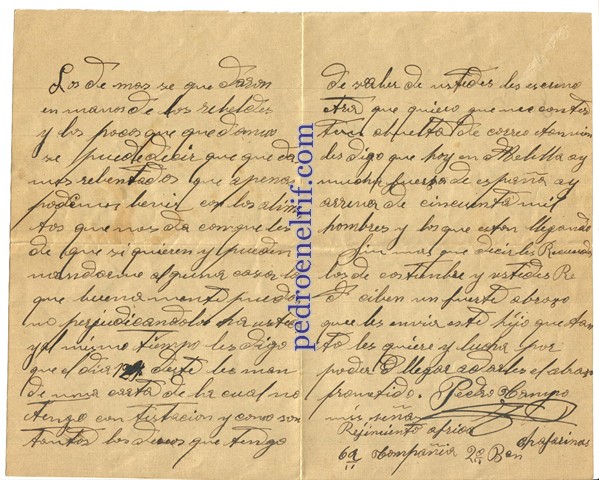 Los de mas se que daron
en manos de los rebeldes
y los pocos que quedamos
se puede decir que queda
mos rebentados que apenas
podemos benir con los alimen
tos que nos dan con que les
digo que si quieren y pueden
mandarme alguna cosa lo
que buena mente puedan
no perjudicandolos ha ustedes
y al mismo tiempo les digo
que el dia 12 siete les man
de una carta de la cual no
tengo contestacion y como son
tantos los deseos que tengo
de saber de ustedes les escribo
esta que quiero que me contes
ten abuelta de correo tamvien
les digo que hoy en Melilla ay
mucha fuerza de españa ay
arriva de cincuenta mil
hombres y los que estan llegando
Sin mas que decirles Recuerdos
los de costumbre y ustedes Re
ciben un fuerte abrazo
que les envia este hijo que tan
to les quiere y lucha por
poder llegar a darles el abrazo
prometido. Pedro Campo
mis señas
Rejimiento africa
6a Compañia 2o Bon Chafarinas
pedroenelrif.com